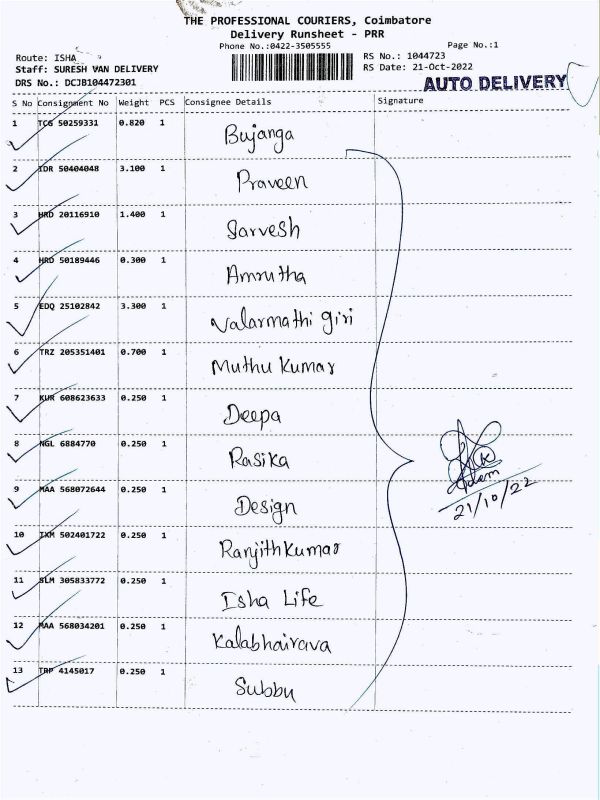 THE PROFESSIONAL COURIERS, Coimbatore
Delivery Runsheet - PRR
Phone No.:0422-3505555
Page No.:1
Route: ISHA
RS No.: 1044723
Staff: SURESH VAN DELIVERY
RS Date: 21-Oct-2022
DRS No.: DCJB104472301
AUTO DELIVERY
S No Consignment No Weight PCS Consignee Details Signature
1 TCG 50259331 0.820 1 Bujanga
2 IDR 50404048 3.100 1 Praveen
3 HRD 20116910 1.400 1 Sarvesh
4 HRD 50189446 0.300 1 Amrutha
5 EDQ 25102842 3.300 1 Valarmathi giri
6 TRZ 205351401 0.700 1 Muthu Kumar
7 KUR 608623633 0.250 1 Deepa
8 NGL 6884770 0.250 1 Rasika
9 MAA 568072644 0.250 1 Design
10 TXM 502401722 0.250 1 Ranjithkumar
11 SLM 305833772 0.250 1 Isha Life
12 MAA 568034201 0.250 1 Kalabhairava
13 TRP 4145017 0.250 1 Subbu
21/10/22